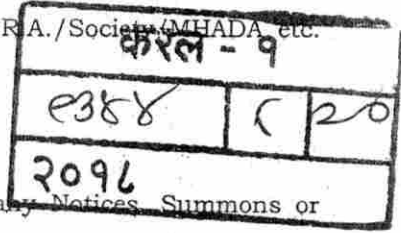 R.A./Society/MHADA etc.
करल - १
९३४४ ८ २०
२०१८
any Notices, Summons or